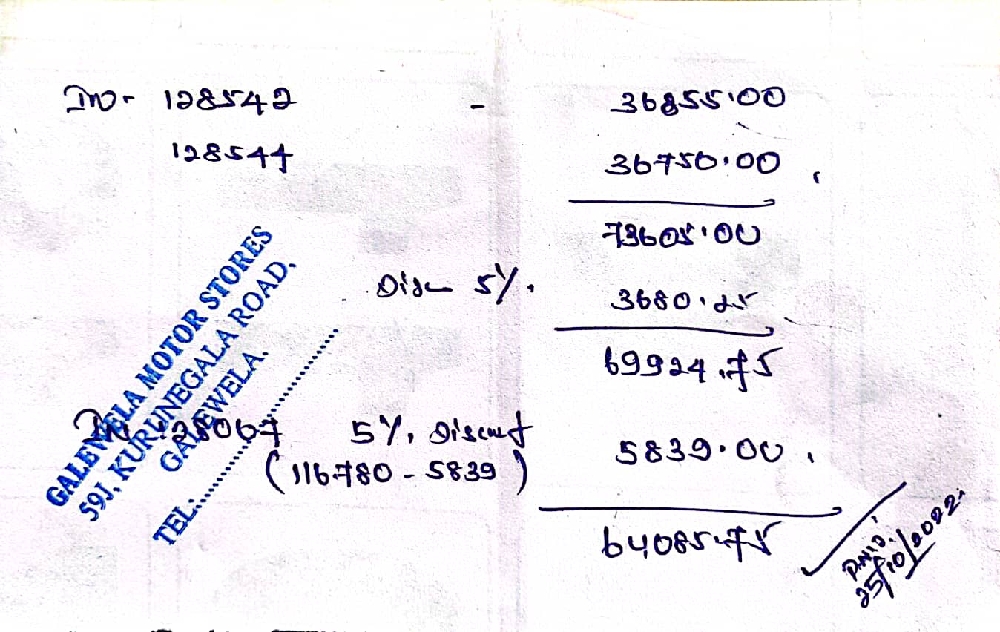 INV- 128542 - 36855.00
128544 36750.00
73605.00
Disc 5%. 3680.25
69924.75
INV 128067 5%. Discount 5839.00
(116780 - 5839)
64085.75
PAID
25/10/2022
GALEWELA MOTOR STORES
591, KURUNEGALA ROAD,
GALEWELA.
TEL:..............................